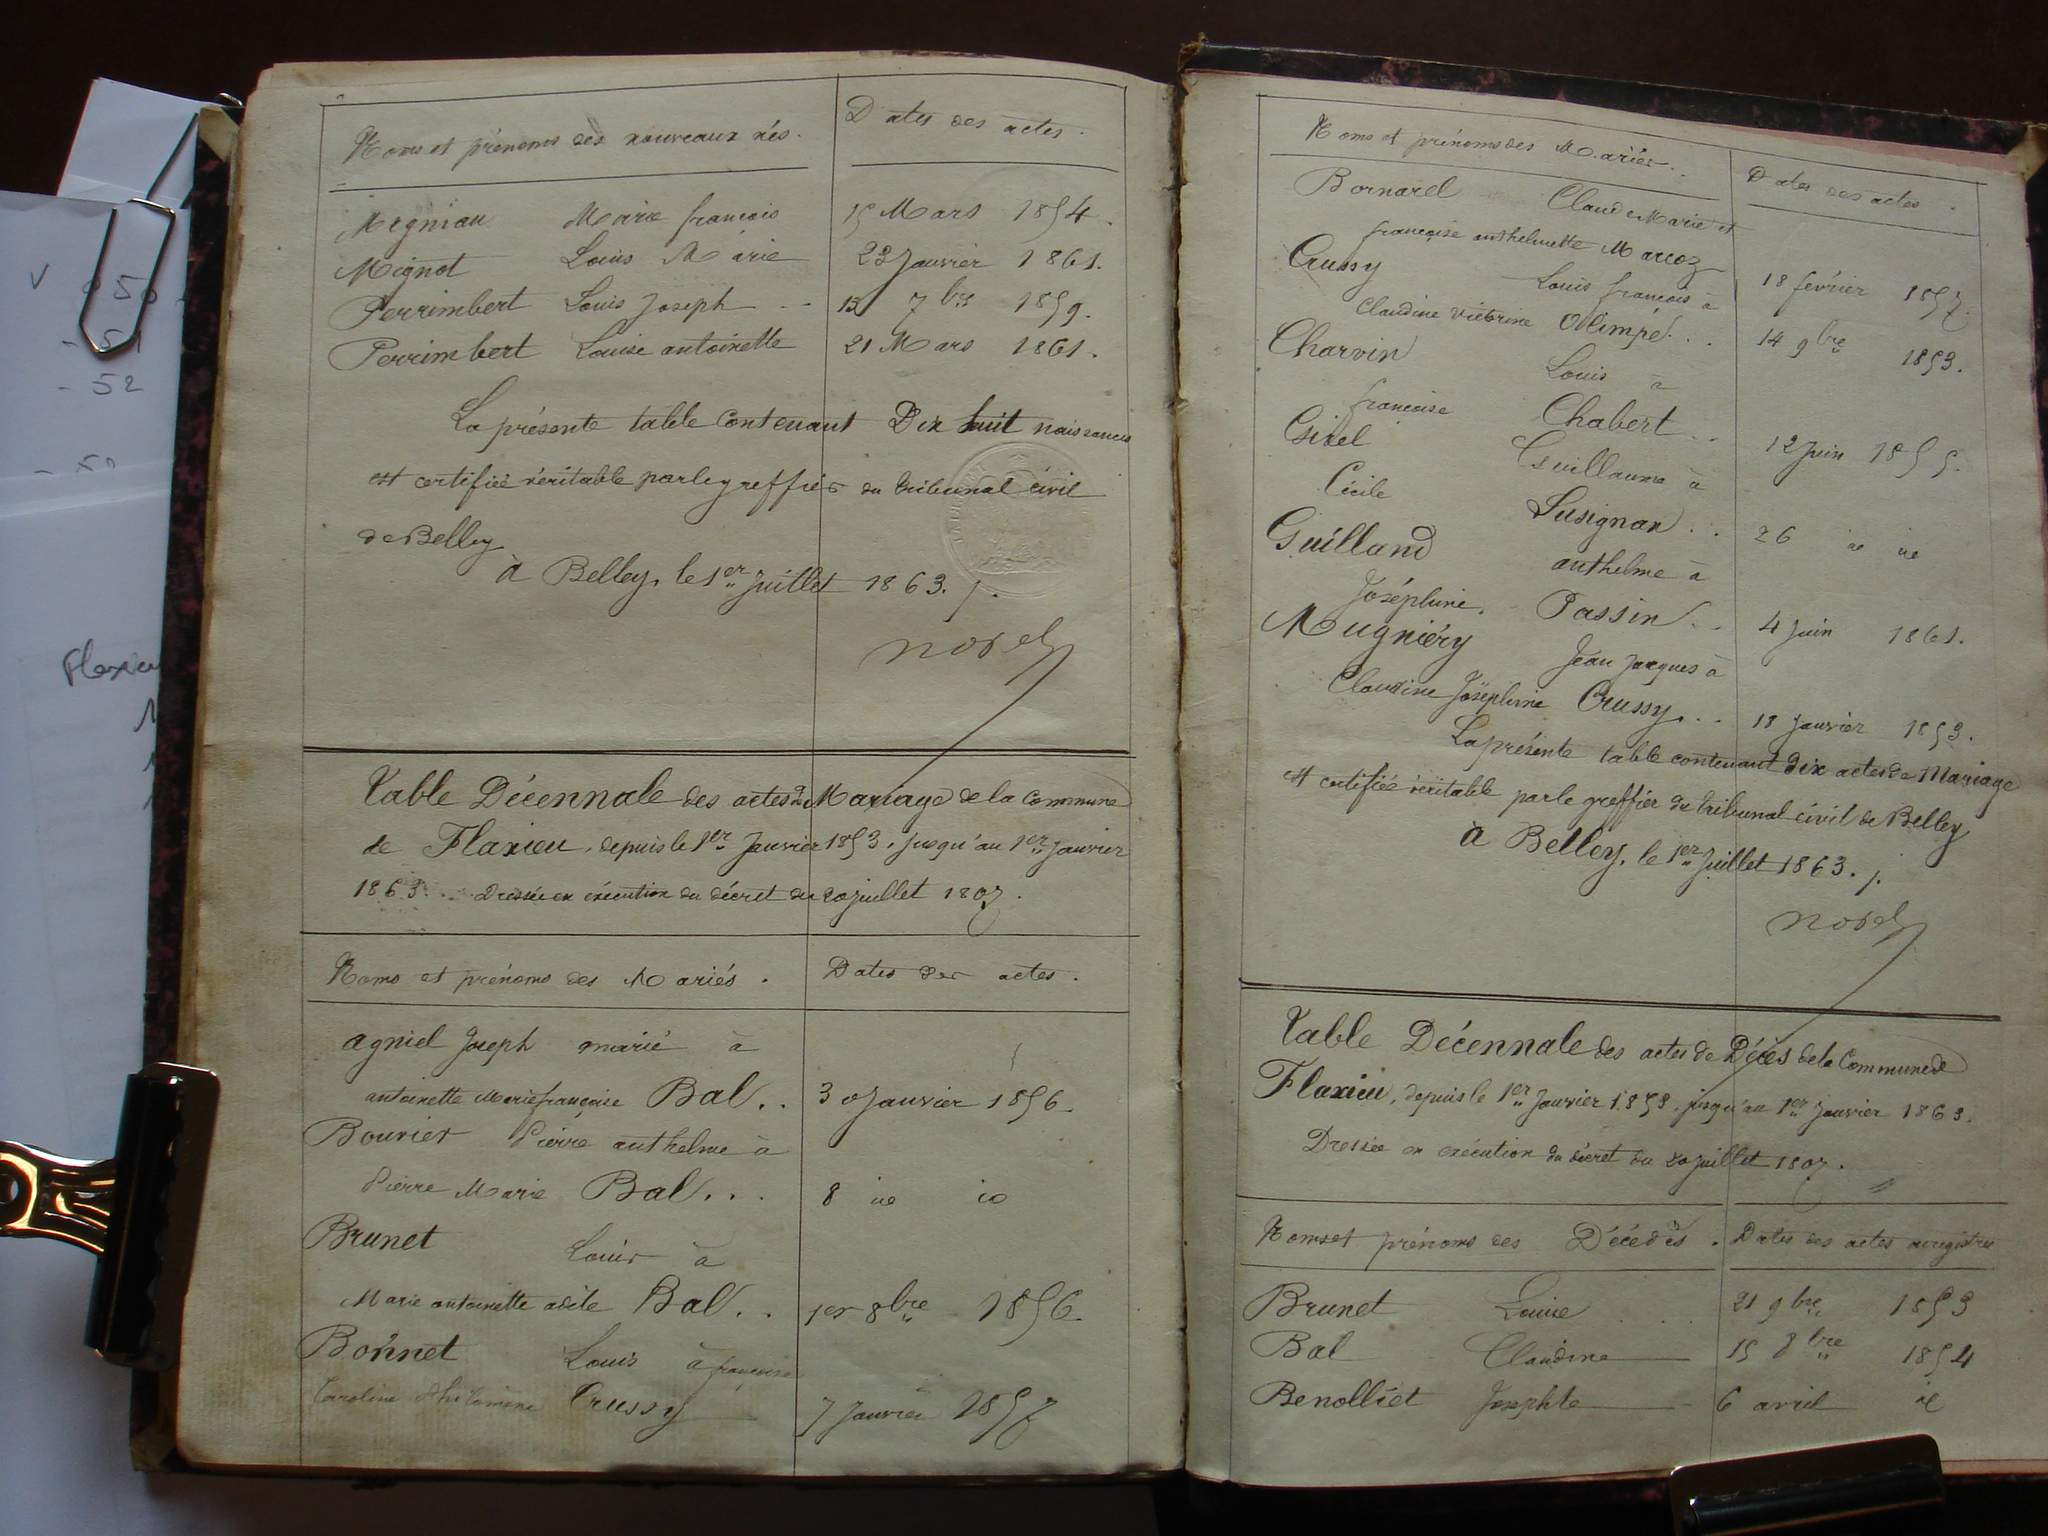 Noms et prénoms des nouveaux nés. Dates des actes.
Megniau Marie françois 15 Mars 1854.
Mignot Louis Marie 23 Janvier 1861.
Perrimbert Louis Joseph 7bre 1859.
Perrimbert Louise antoinette 21 Mars 1861.
La présente table contenant Dix huit naissances
est certifiée véritable par le greffier du tribunal civil
de Belley
à Belley, le 1er Juillet 1863.
Table Décennale des actes de Mariage de la Commune
de Flaxieu, depuis le 1er Janvier 1853, jusqu'au 1er Janvier
1863. Dressée en exécution du décret du 20 juillet 1807.
Noms et prénoms des Mariés. Dates des actes.
agniel Joseph marié à
antoinette Marie françoise Bal.. 30 Janvier 1856.
Bouvier Pierre anthelme à
Pierre Marie Bal... 8
Brunet Louis à
Marie antoinette Bal.. 1er 8bre 1856.
Bonnet Louis à françoise
Caroline Philomène Crussy 7 Janvier 1857
v 50
- 51
- 52
Flaxieu
Noms et prénoms des Mariés.. Dates des actes.
Bornarel Claude Marie et
françoise anthelmette Marcoz 18 février 1857.
Crussy Louis françois à
Claudine victorine Olimpe... 14 9bre 1853.
Charvin Louis à
françoise Chabert.. 12 Juin 1855.
Girel Guillaume à
Cécile Lusignan... 26
Guilland anthelme à
Joséphine. Passin.. 4 Juin 1861.
Mugniéry Jean Jacques à
Claudine Joséphine Crussy... 18 Janvier 1853.
La présente table contenant dix actes de Mariage
est certifiée véritable par le greffier du tribunal civil de Belley
à Belley, le 1er Juillet 1863.
Table Décennale des actes de Décès de la Commune de
Flaxieu, depuis le 1er Janvier 1853, jusqu'au 1er Janvier 1863.
Dressée en exécution du décret du 20 juillet 1807.
Noms et prénoms des Décédés. Dates des actes
Brunet Louise 21 9bre 1853
Bal Claudine 15 8bre 1854
Benolliet Josephte 6 avril